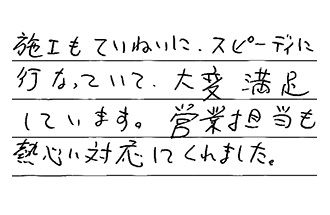 施工もていねいに、スピーディに
行なっていて、大変満足
しています。営業担当も
熱心に対応してくれました。